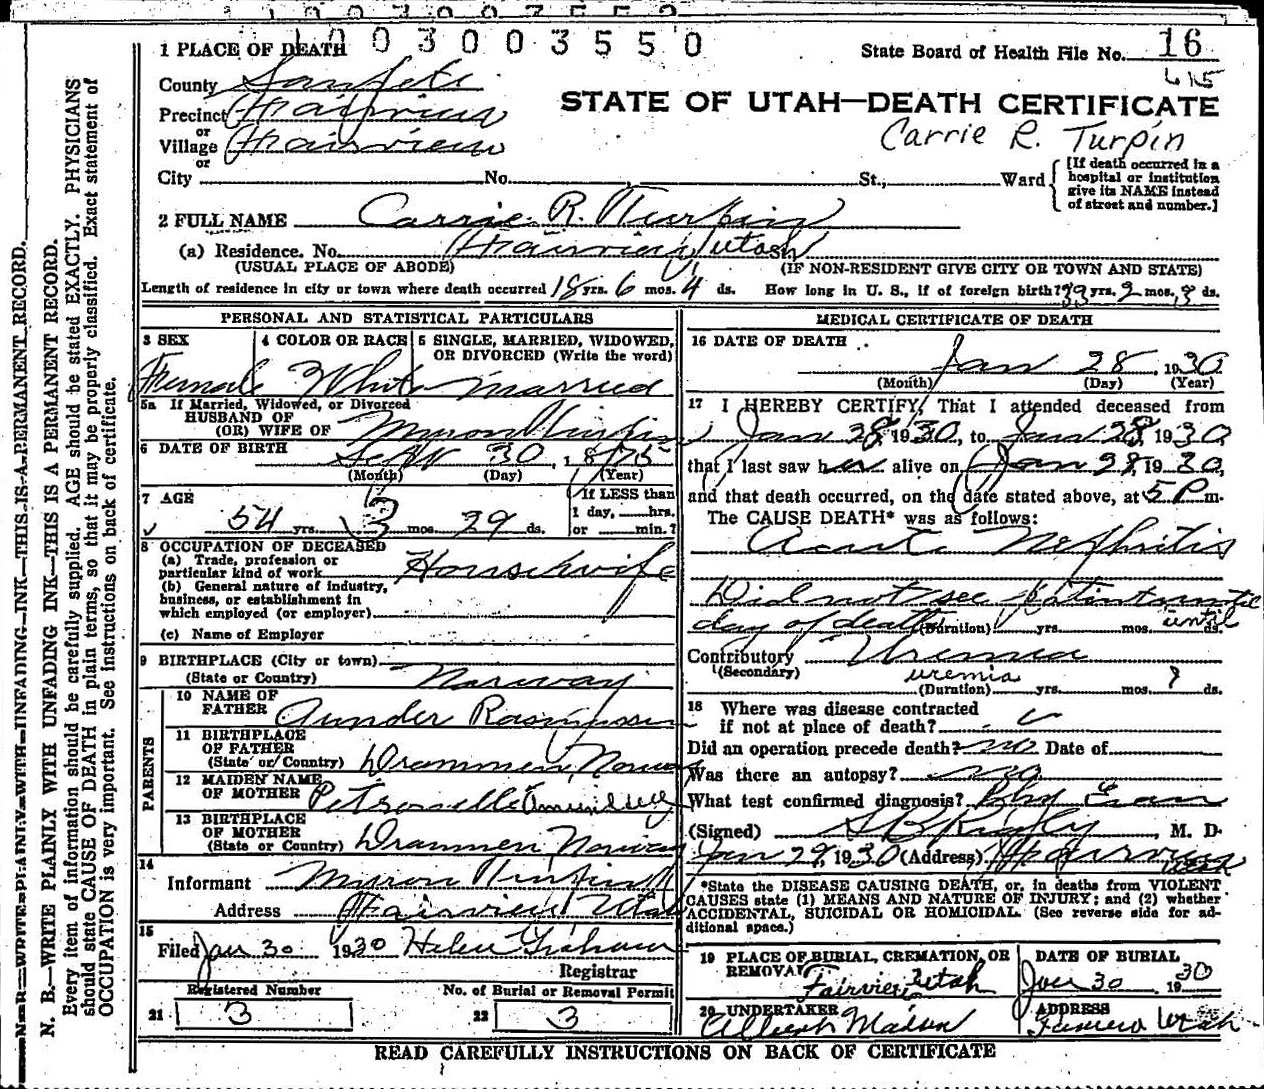 1 0 0 3 0 0 3 5 5 0
1 PLACE OF DEATH
State Board of Health File No. 16
615
County Sanpete
STATE OF UTAH—DEATH CERTIFICATE
Precinct Fairview
or
Carrie R. Turpin
Village Fairview
or
City No. St., Ward
[If death occurred in a hospital or institution give its NAME instead of street and number.]
2 FULL NAME Carrie R. Turpin
(a) Residence. No. Fairview Utah
(USUAL PLACE OF ABODE) (IF NON-RESIDENT GIVE CITY OR TOWN AND STATE)
Length of residence in city or town where death occurred 18 yrs. 6 mos. 4 ds. How long in U. S., if of foreign birth? yrs. 2 mos. ds.
PERSONAL AND STATISTICAL PARTICULARS
3 SEX 4 COLOR OR RACE 5 SINGLE, MARRIED, WIDOWED,
OR DIVORCED (Write the word)
Female White Married
5a If Married, Widowed, or Divorced
HUSBAND OF
(OR) WIFE OF Myron Turpin
6 DATE OF BIRTH Sept 30, 1875
(Month) (Day) (Year)
7 AGE
If LESS than
1 day, hrs.
54 yrs. 3 mos. 29 ds. or min.?
8 OCCUPATION OF DECEASED
(a) Trade, profession or
particular kind of work Housewife
(b) General nature of industry,
business, or establishment in
which employed (or employer)
(c) Name of Employer
9 BIRTHPLACE (City or town)
(State or Country) Norway
PARENTS
10 NAME OF
FATHER Gunder Rasmussen
11 BIRTHPLACE
OF FATHER
(State or Country) Drammen, Norway
12 MAIDEN NAME
OF MOTHER Petronelle
13 BIRTHPLACE
OF MOTHER
(State or Country) Drammen Norway
14
Informant Myron Turpin
Address Fairview Utah
15
Filed Jan 30 1930 Helen Graham
Registrar
Registered Number No. of Burial or Removal Permit
21 3 22 3
MEDICAL CERTIFICATE OF DEATH
16 DATE OF DEATH
Jan 28, 1930
(Month) (Day) (Year)
17 I HEREBY CERTIFY, That I attended deceased from
Jan 28, 1930, to Jan 28, 1930,
that I last saw her alive on Jan 28, 1930,
and that death occurred, on the date stated above, at 5 P m.
The CAUSE DEATH* was as follows:
Acute Nephritis
Did not see patient until
day of death (Duration) yrs. mos. ds.
until
Contributory Uremia
(Secondary) uremia
(Duration) yrs. mos. ? ds.
18 Where was disease contracted
if not at place of death?
Did an operation precede death? no Date of
Was there an autopsy? no
What test confirmed diagnosis? Phy Exam
(Signed) S B Rigby, M. D.
Jan 29, 1930 (Address) Fairview
Utah
*State the DISEASE CAUSING DEATH, or, in deaths from VIOLENT
CAUSES state (1) MEANS AND NATURE OF INJURY; and (2) whether
ACCIDENTAL, SUICIDAL OR HOMICIDAL. (See reverse side for ad-
ditional space.)
19 PLACE OF BURIAL, CREMATION, OR
REMOVAL
Fairview Utah
DATE OF BURIAL
Jan 30 1930
20 UNDERTAKER
Albert Madsen
ADDRESS
Fairview Utah
READ CAREFULLY INSTRUCTIONS ON BACK OF CERTIFICATE
N. B.—WRITE PLAINLY WITH UNFADING INK—THIS IS A PERMANENT RECORD.
N. B.—WRITE PLAINLY WITH UNFADING INK—THIS IS A PERMANENT RECORD.
Every item of information should be carefully supplied. AGE should be stated EXACTLY. PHYSICIANS
should state CAUSE OF DEATH in plain terms, so that it may be properly classified. Exact statement of
OCCUPATION is very important. See instructions on back of certificate.